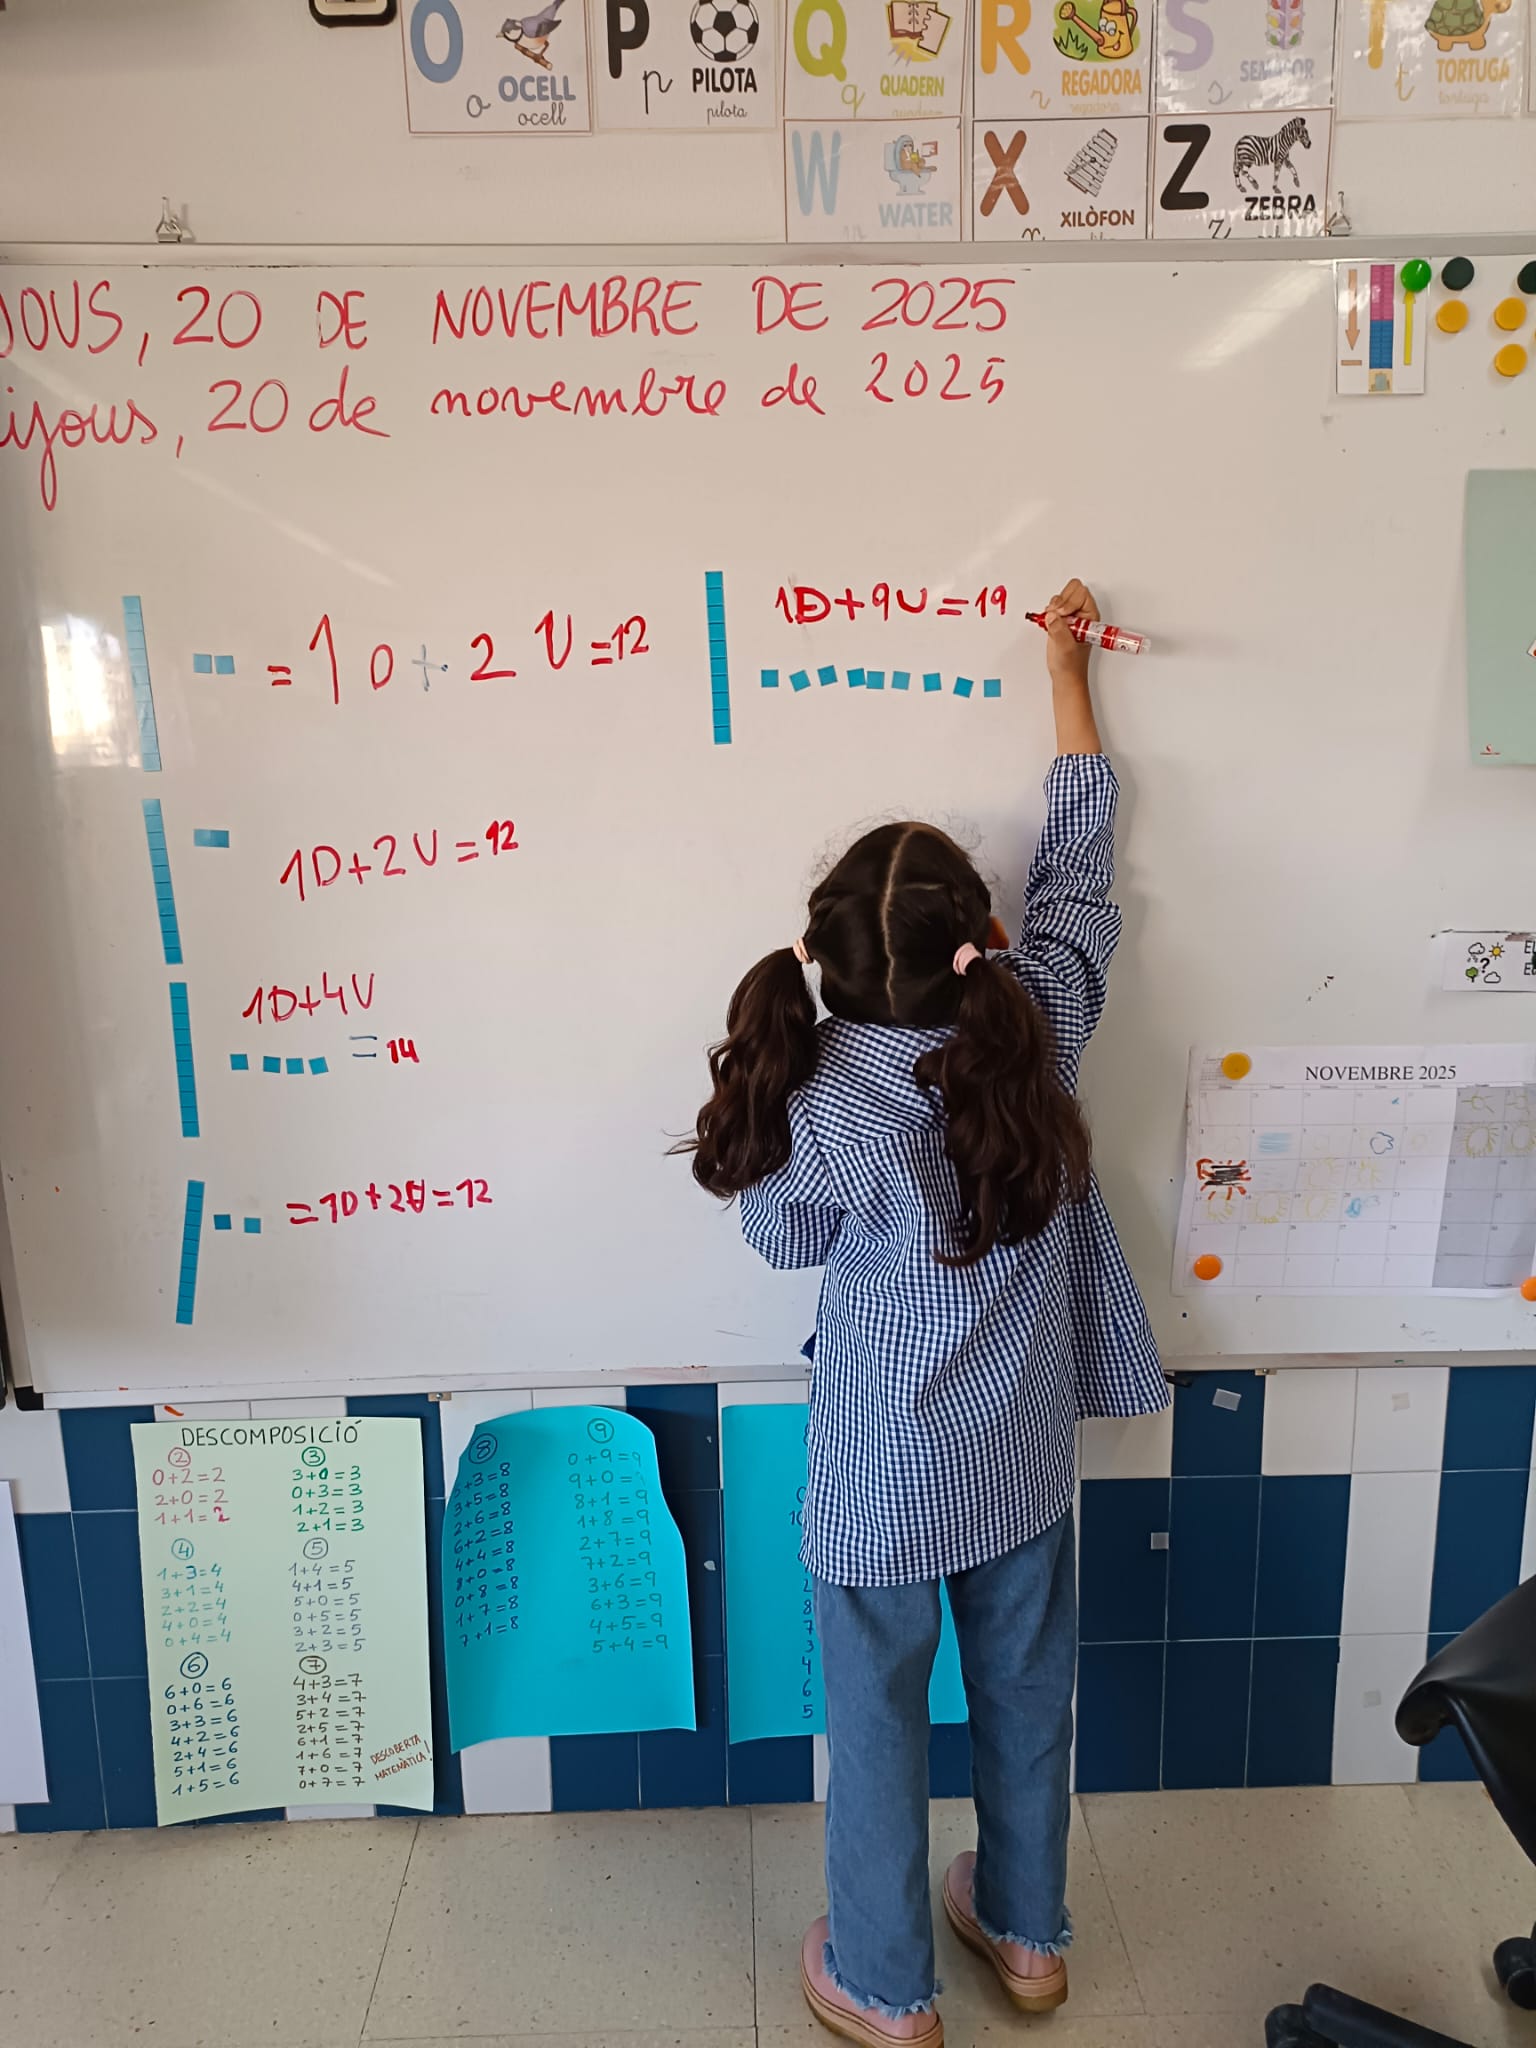 O
OCELL
o ocell
P
PILOTA
p pilota
Q
QUADERN
q
R
REGADORA
r regadora
S
s
T
TORTUGA
t tortuga
W
WATER
X
XILÒFON
Z
ZEBRA
z
JOUS, 20 DE NOVEMBRE DE 2025
ijous, 20 de novembre de 2025
= 1 D + 2 U = 12
1D+9U=19
1D+2U=12
1D+4U
= 14
=1D+2U=12
NOVEMBRE 2025
DESCOMPOSICIÓ
2
0+2=2
2+0=2
1+1=2
3
3+0=3
0+3=3
1+2=3
2+1=3
4
1+3=4
3+1=4
2+2=4
4+0=4
0+4=4
5
1+4=5
4+1=5
5+0=5
0+5=5
3+2=5
2+3=5
6
6+0=6
0+6=6
3+3=6
4+2=6
2+4=6
5+1=6
1+5=6
7
4+3=7
3+4=7
5+2=7
2+5=7
6+1=7
1+6=7
7+0=7
0+7=7
DESCOBERTA
MATEMÀTICA!
8
+3=8
3+5=8
2+6=8
6+2=8
4+4=8
8+0=8
0+8=8
1+7=8
7+1=8
9
0+9=9
9+0=
8+1=9
1+8=9
2+7=9
7+2=9
3+6=9
6+3=9
4+5=9
5+4=9
2
8
7
3
4
6
5